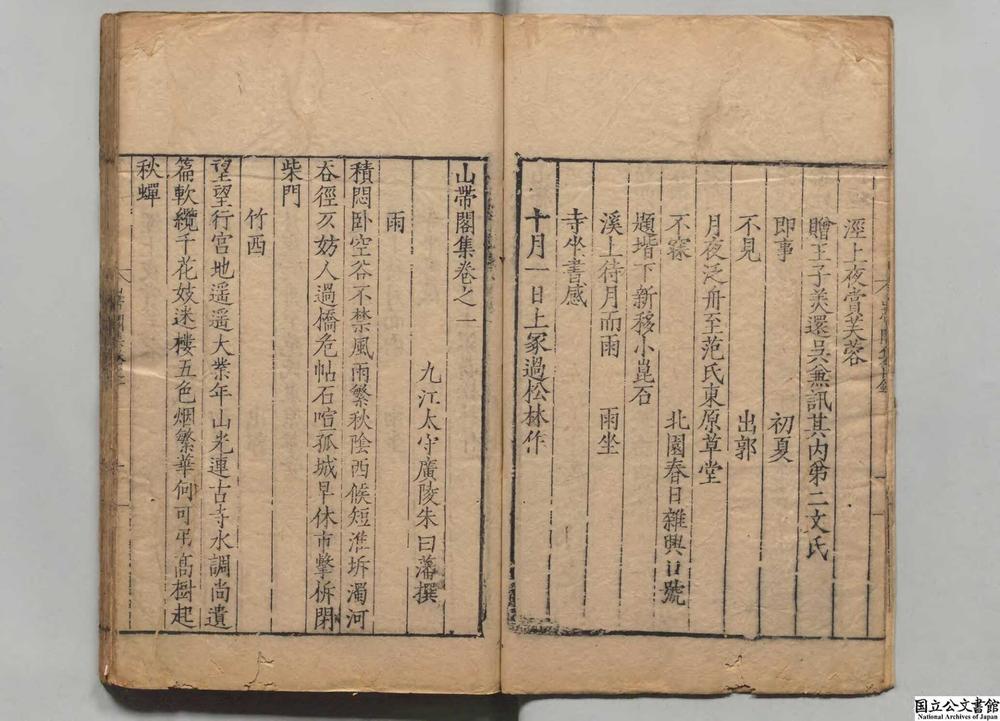 溼上夜賞芙蓉
贈王子美還吳兼訊其内弟二文氏
即事 初夏
不見 出郭
月夜泛舟至范氏東原草堂
不寐 北園春日雜興口號
題堦下新移小崑石
溪上待月而雨 雨坐
寺坐書感
十月一日上冢過松林作
山帶閣集卷之一
九江太守廣陵朱曰藩撰
雨
積悶卧空谷不禁風雨繁秋陰西候短淮坼濁河
吞徑仄妨人過橋危帖石喧孤城早休市擊柝閉
柴門
竹西
望望行宫地遥遥大業年山光連古寺水調尚遺
篇軟纜千花妓迷樓五色烟繁華何可弔髙樹起
秋蟬
国立公文書館
National Archives of Japan